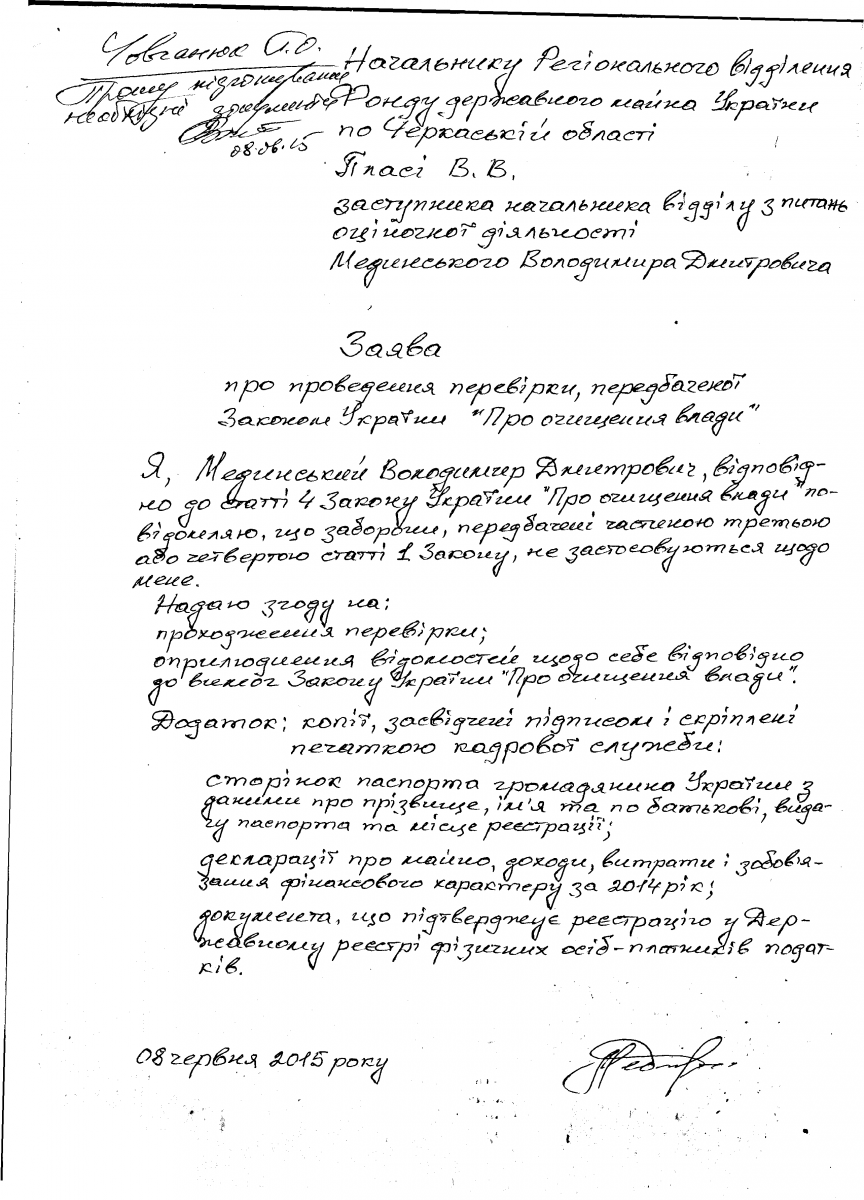 Човганюк О.О.
Прошу підготувати
необхідні документи
08.06.15
Начальнику Регіонального відділення
Фонду державного майна України
по Черкаській області
Пласі В. В.
заступника начальника відділу з питань
оціночної діяльності
Мединського Володимира Дмитровича
Заява
про проведення перевірки, передбаченої
Законом України "Про очищення влади"
Я, Мединський Володимир Дмитрович, відповід-
но до статті 4 Закону України "Про очищення влади" по-
відомляю, що заборони, передбачені частиною третьою
або четвертою статті 1 Закону, не застосовуються щодо
мене.
Надаю згоду на:
проходження перевірки;
оприлюднення відомостей щодо себе відповідно
до вимог Закону України "Про очищення влади".
Додаток: копії, засвідчені підписом і скріплені
печаткою кадрової служби:
сторінок паспорта громадянина України з
даними про прізвище, ім'я та по батькові, вида-
чу паспорта та місце реєстрації;
декларації про майно, доходи, витрати і зобов'я-
зання фінансового характеру за 2014 рік;
документа, що підтверджує реєстрацію у Дер-
жавному реєстрі фізичних осіб-платників подат-
ків.
08 червня 2015 року